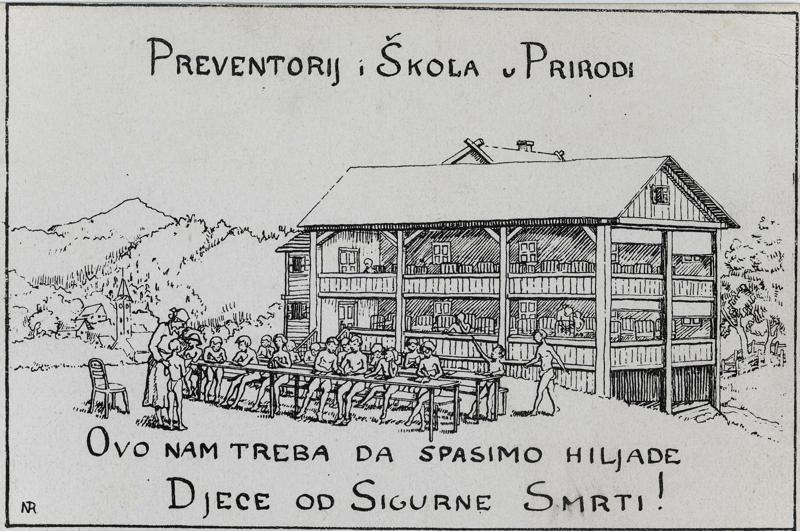 PREVENTORIJ i ŠKOLA u PRIRODI
OVO NAM TREBA DA SPASIMO HILJADE
DJECE OD SIGURNE SMRTI!
NR